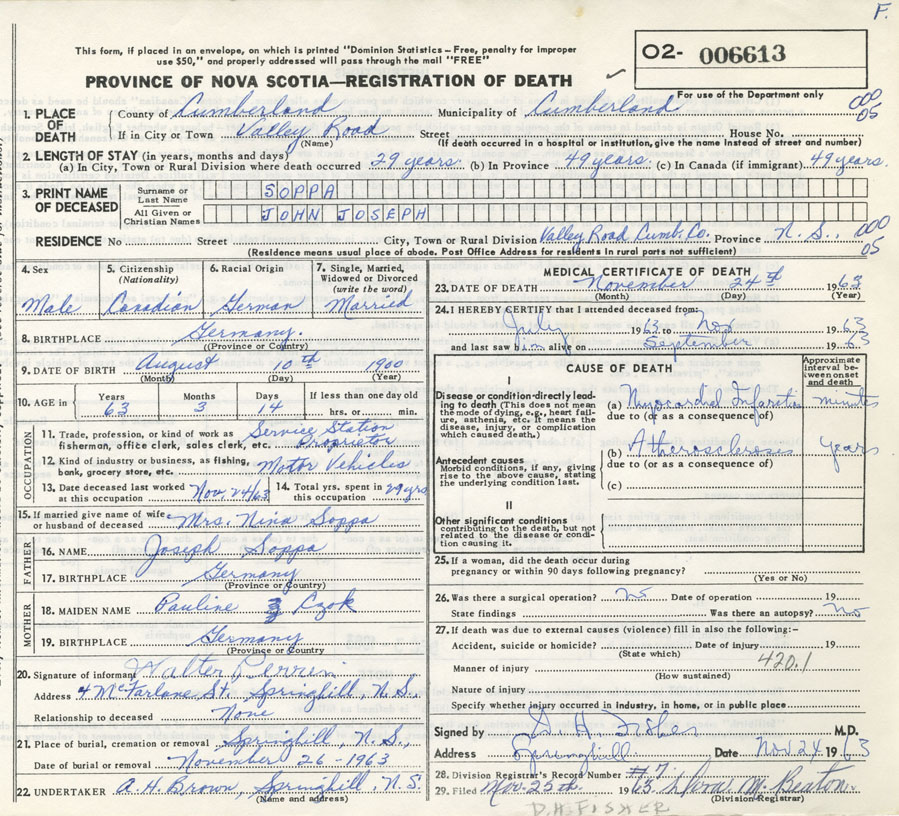 F.
This form, if placed in an envelope, on which is printed "Dominion Statistics – Free, penalty for improper
use $50," and properly addressed will pass through the mail "FREE"
O2- 006613
PROVINCE OF NOVA SCOTIA—REGISTRATION OF DEATH
For use of the Department only
1. PLACE OF DEATH
County of Cumberland Municipality of Cumberland 000 05
If in City or Town Valley Road Street House No.
(Name) (If death occurred in a hospital or institution, give the name instead of street and number)
2. LENGTH OF STAY (in years, months and days)
(a) In City, Town or Rural Division where death occurred 29 years. (b) In Province 49 years. (c) In Canada (if immigrant) 49 years.
3. PRINT NAME OF DECEASED
Surname or Last Name SOPPA
All Given or Christian Names JOHN JOSEPH
RESIDENCE No Street City, Town or Rural Division Valley Road Cumb. Co. Province N. S., 000 05
(Residence means usual place of abode. Post Office Address for residents in rural parts not sufficient)
4. Sex Male
5. Citizenship (Nationality) Canadian
6. Racial Origin German
7. Single, Married, Widowed or Divorced (write the word) Married
8. BIRTHPLACE Germany.
((Province or Country)
9. DATE OF BIRTH August 10th 1900
(Month) (Day) (Year)
10. AGE in Years 63 Months 3 Days 14 If less than one day old hrs. or min.
OCCUPATION
11. Trade, profession, or kind of work as fisherman, office clerk, sales clerk, etc. Service Station Proprietor
12. Kind of industry or business, as fishing, bank, grocery store, etc. Motor Vehicles
13. Date deceased last worked at this occupation Nov. 24/63
14. Total yrs. spent in this occupation 29 yrs
15. If married give name of wife or husband of deceased Mrs. Nina Soppa
FATHER
16. NAME Joseph Soppa
17. BIRTHPLACE Germany
(Province or Country)
MOTHER
18. MAIDEN NAME Pauline Czok
19. BIRTHPLACE Germany
(Province or Country)
20. Signature of informant Walter
Address 4 McFarlane St. Springhill, N.S.
Relationship to deceased None
21. Place of burial, cremation or removal Springhill, N.S.,
Date of burial or removal November 26 - 1963
22. UNDERTAKER A. H. Brown, Springhill, N.S.
(Name and address)
MEDICAL CERTIFICATE OF DEATH
23. DATE OF DEATH November 24th 1963
(Month) (Day) (Year)
24. I HEREBY CERTIFY that I attended deceased from:
July 1963 to Nov 1963
and last saw him alive on September 1963
CAUSE OF DEATH
Approximate interval between onset and death
I
Disease or condition directly leading to death (This does not mean the mode of dying, e.g., heart failure, asthenia, etc. It means the disease, injury, or complication which caused death.)
(a) Myocardial minutes
due to (or as a consequence of)
Antecedent causes
Morbid conditions, if any, giving rise to the above cause, stating the underlying condition last.
(b) Atherosclerosis years
due to (or as a consequence of)
(c)
II
Other significant conditions
contributing to the death, but not related to the disease or condition causing it.
25. If a woman, did the death occur during
pregnancy or within 90 days following pregnancy?
(Yes or No)
26. Was there a surgical operation? No Date of operation 19
State findings Was there an autopsy? No
27. If death was due to external causes (violence) fill in also the following:–
Accident, suicide or homicide? Date of injury 19
(State which)
420.1
Manner of injury
(How sustained)
Nature of injury
Specify whether injury occurred in industry, in home, or in public place
Signed by D. H. Fisher M.D.
Address Springhill Date Nov 24 1963
28. Division Registrar's Record Number #7.
29. Filed Nov. 25th. 1963. M. Beaton.
(Division Registrar)
D.H. FISHER